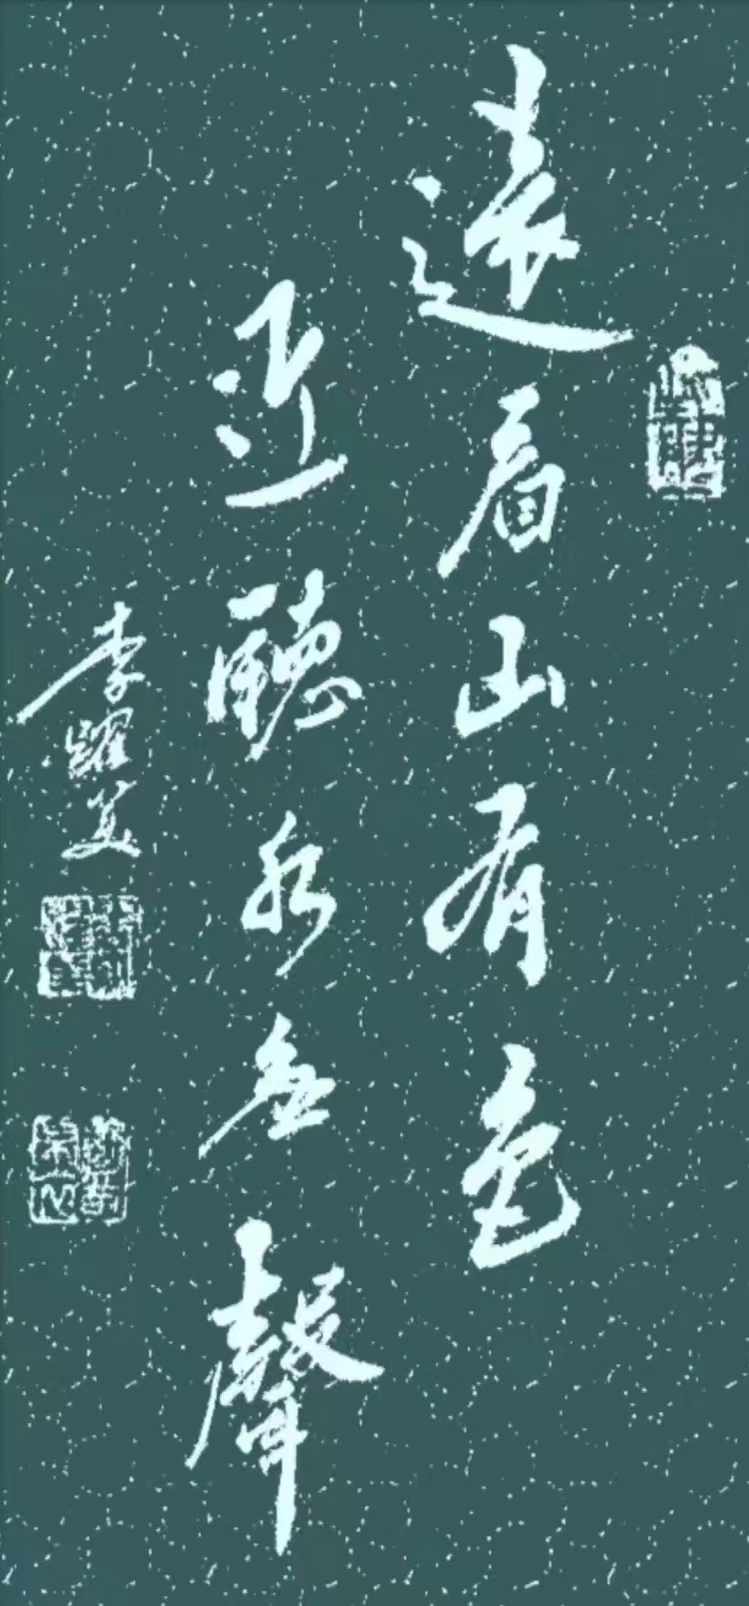 遠看山有色
近聽水無聲
李耀美